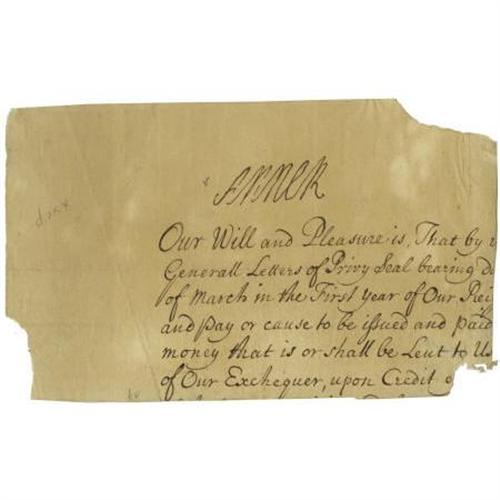 Anne R
Our Will and Pleasure is, That by
Generall Letters of Privy Seal bearing d
of March in the First year of Our Rei
and pay or cause to be issued and paid
money that is or shall be Lent to Us
of Our Exchequer, upon Credit